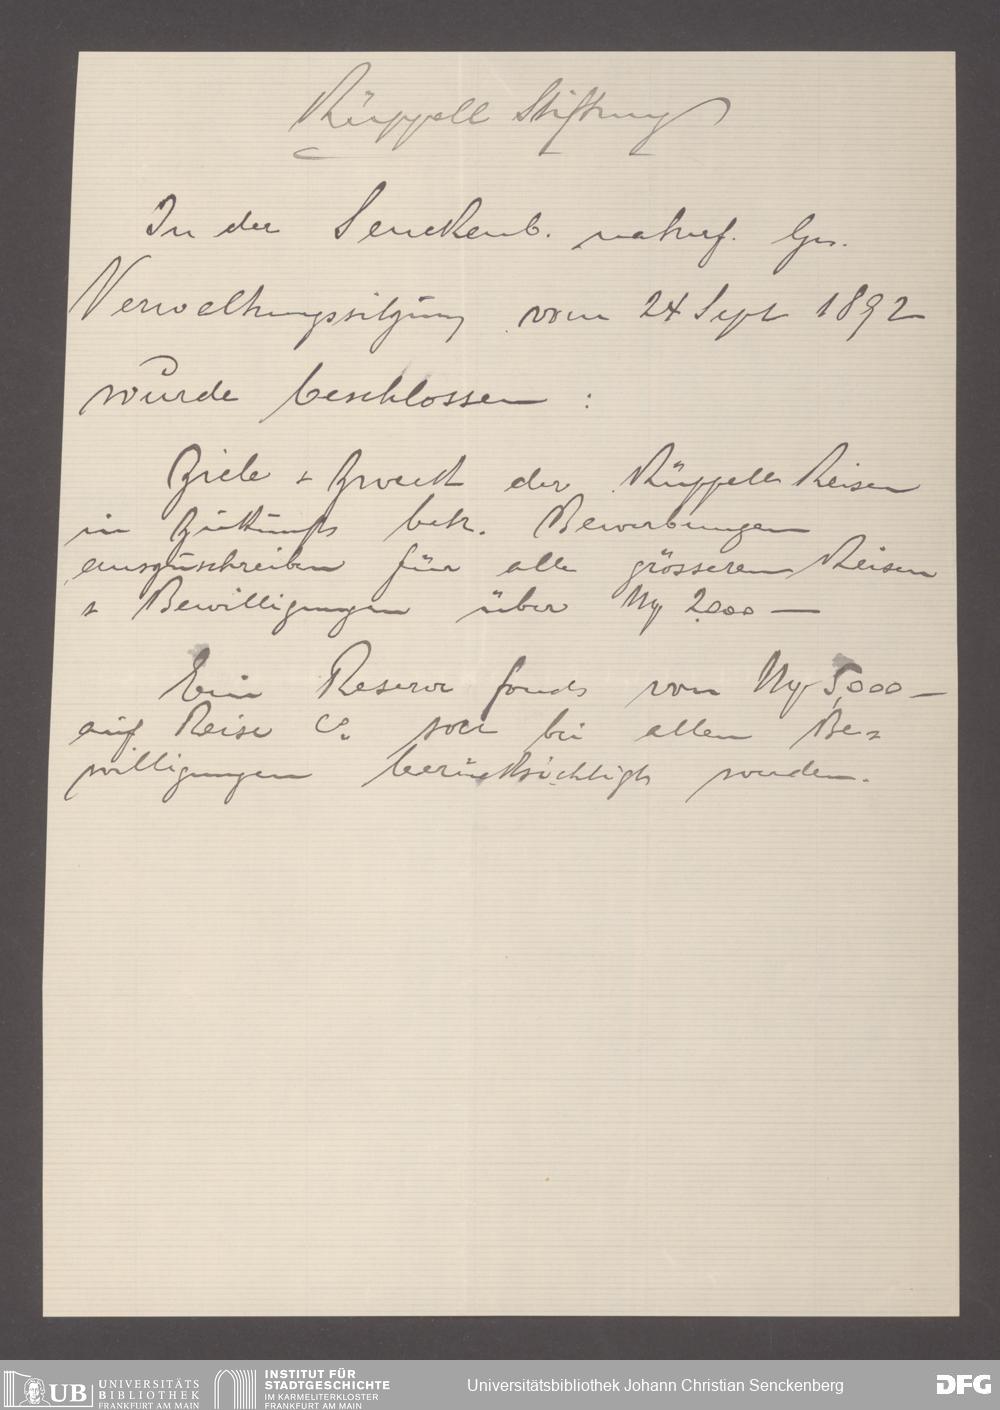 Rüppell Stiftung
In der Senckenb. naturf. Ges.
Verwaltungssitzung vom 24 Sept 1892
wurde beschlossen :
Ziele & Zweck der Rüppell Reisen
in Zukunft betr. Bewerbungen
auszuschreiben für alle grösseren Reisen
& Bewilligungen über Mk 2000 —
Ein Reserve fonds von Mk 5,000 —
auf Reise Co. soll bei allen Be-
willigungen berücksichtigt werden.
UB UNIVERSITÄTS
BIBLIOTHEK
FRANKFURT AM MAIN
INSTITUT FÜR
STADTGESCHICHTE
IM KARMELITERKLOSTER
FRANKFURT AM MAIN
Universitätsbibliothek Johann Christian Senckenberg
DFG